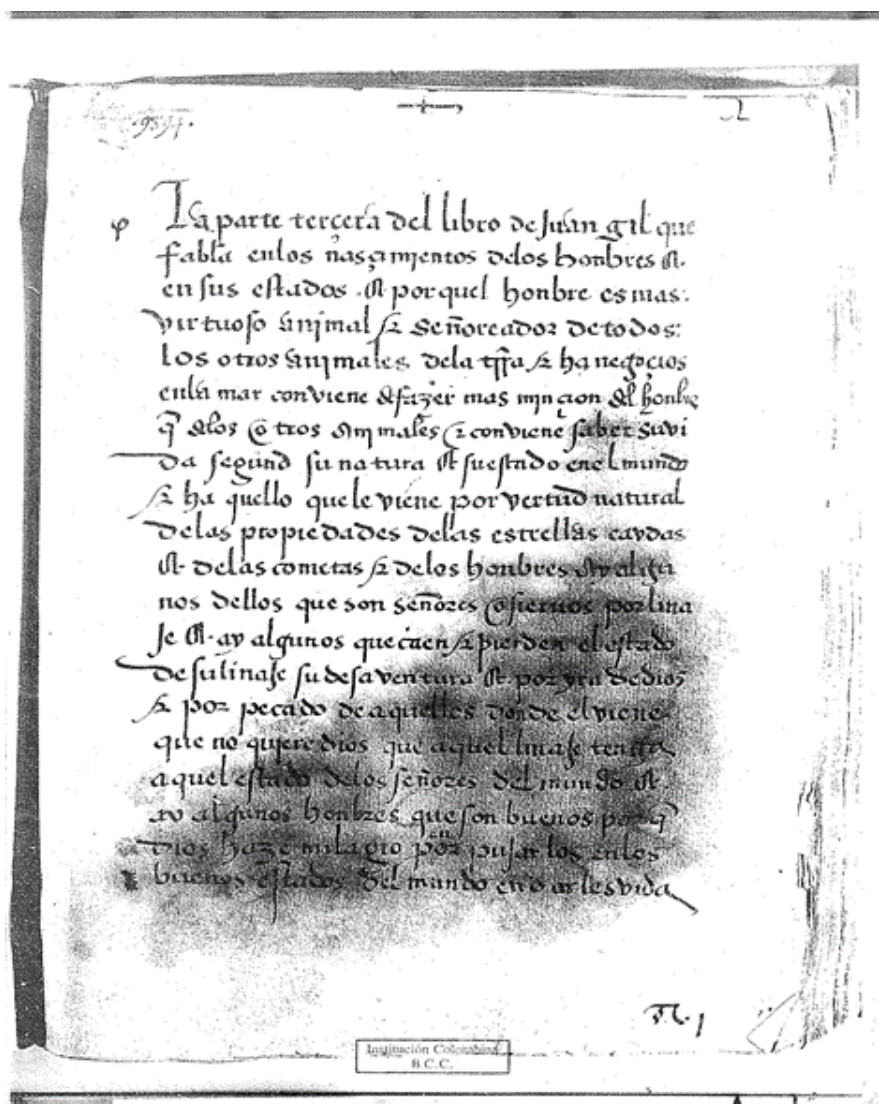 .9394.
La parte terçera del libro de Juan gil que
fabla enlos nasçimjentos delos honbres &.
en sus estados . & porquel honbre es mas:
virtuoso anjmal & señoreador de todos:
los otros anjmales. dela trra & ha negoçios
enla mar conviene de fazer mas mjnçion del honbre
q̃ delos otros anjmales & conviene saber su vi
da segund su natura & su estado enel mundo
& ha quello que le viene por vertud natural
delas propiedades delas estrellas caydas
&. delas cometas & delos honbres & ay algu
nos dellos que son señores o sieruos por lina
je &. ay algunos que caen & pierden el estado
de su linaje su desaventura &. por yra de dios
& por pecado de aquelles donde el viene
que no qujere dios que aquel linaje tenga
aquel estado delos señores del mundo &.
ay algunos honbres que son buenos por q̃
dios haze milagro por en pujar los enlos
buenos estados del mundo en dar les vida
Institución Colombina
B.C.C.